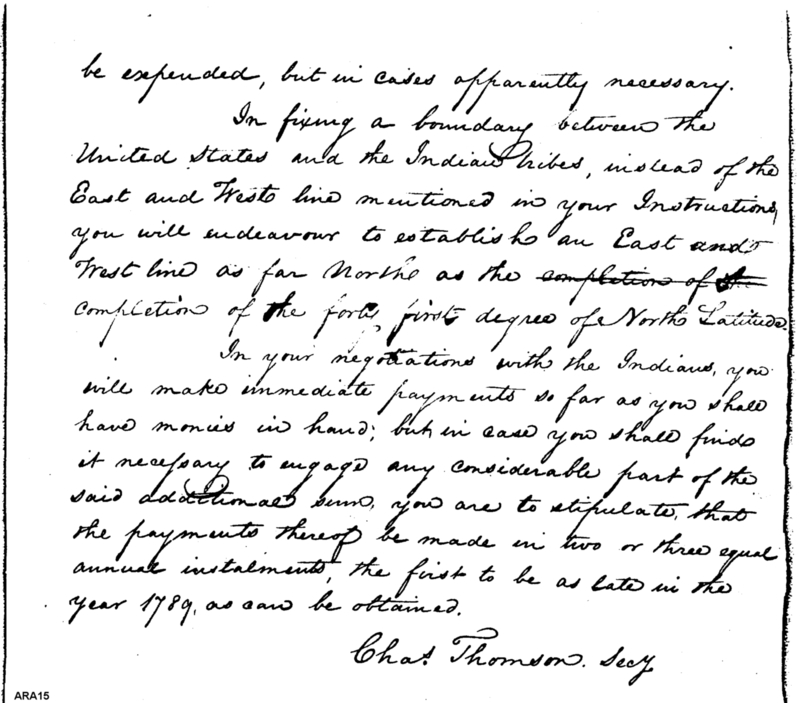 be expended, but in cases apparently necessary.
In fixing a boundary between the
United States and the Indian tribes, instead of the
East and West line mentioned in your Instructions,
you will endeavour to establish an East and
West line as far North as the completion of the
completion of the forty first degree of North Latitude.
In your negotiations with the Indians, you
will make immediate payments so far as you shall
have monies in hand; but in case you shall find
it necessary to engage any considerable part of the
said additional sum, you are to stipulate, that
the payments thereof be made in two or three equal
annual instalments, the first to be as late in the
year 1789, as can be obtained.
Chas. Thomson. Secy
ARA15